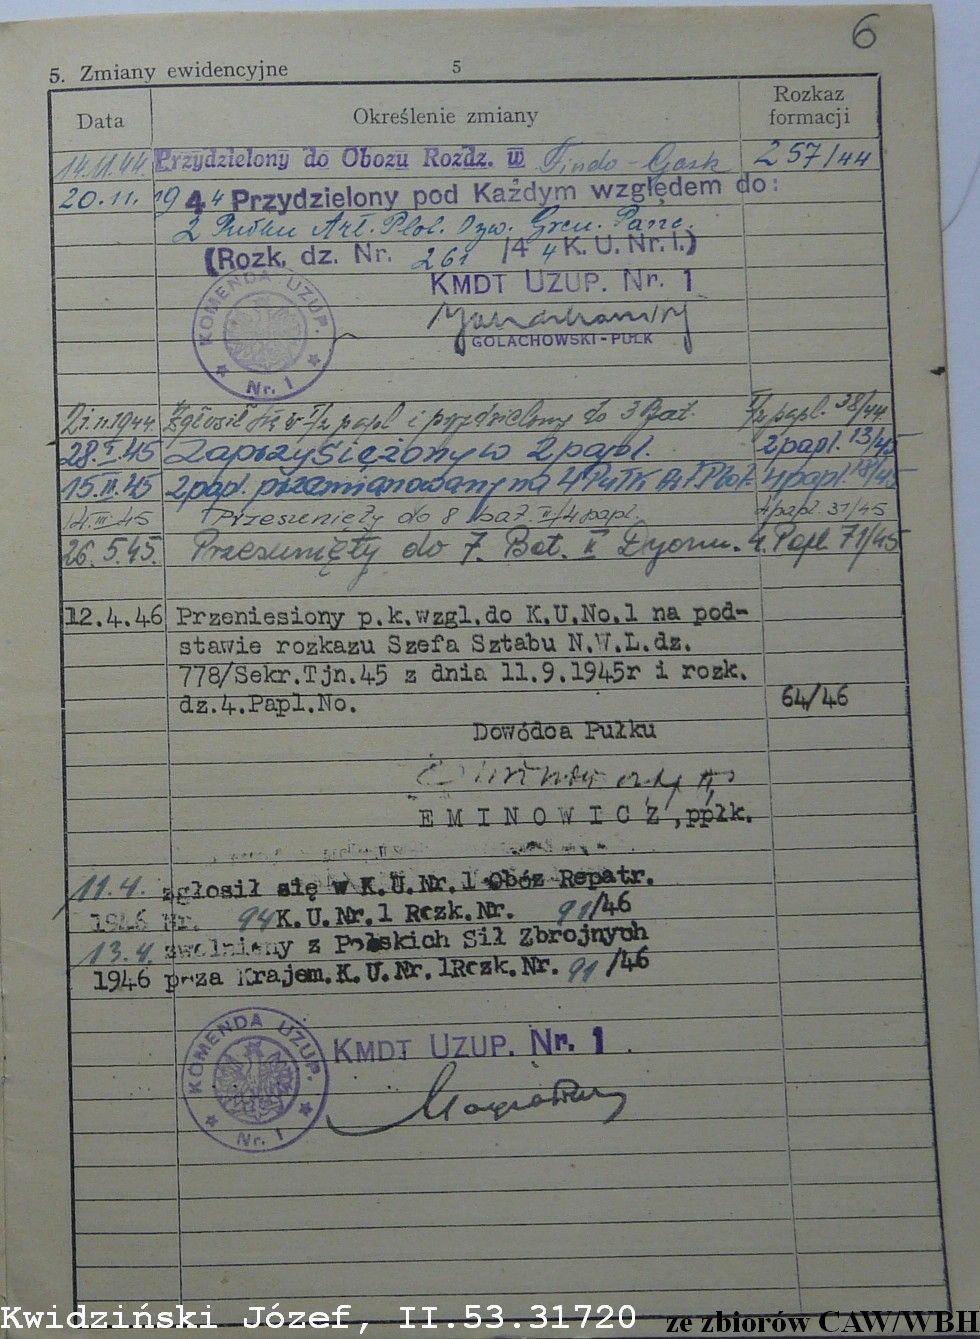 6
5. Zmiany ewidencyjne 5
Data Określenie zmiany Rozkaz formacji
14.11.44. Przydzielony do Obozu Rozdz. w Findo-Gask 257/44
20.11. 1944 Przydzielony pod Każdym względem do:
2 Pułku Art. Plot. Dyw. Gren. Panc.
(Rozk. dz. Nr. 261 /44 K. U. Nr. I.)
KMDT UZUP. Nr. 1
KOMENDA UZUP. Nr. 1
GOLACHOWSKI-PUŁK
21.11.1944 Zgłosił się w I/2 papl i przydzielony do 3 Bat. I/2 papl. 38/44
28.I.45 Zaprzysiężony w 2 papl. 2 papl. 13/45
15.II.45 2 papl. przemianowany na 4 Pułk Art. Plot. 4 papl. 18/45
14.III.45 Przesunięty do 8 bat. II/4 papl. 4 papl. 31/45
26.5.45. Przesunięty do 7. Bat. II Dyonu. 4. Papl. 71/45
12.4.46 Przeniesiony p.k.wzgl.do K.U.No.1 na pod-
stawie rozkazu Szefa Sztabu N.W.L.dz.
778/Sekr.Tjn.45 z dnia 11.9.1945r i rozk.
dz.4.Papl.No. 64/46
Dowódca Pułku
EMINOWICZ, ppłk.
11.4. zgłosił się w K.U.Nr.1 Obóz Repatr.
1946 Nr. 94 K.U.Nr.1 Rozk.Nr. 91/46
13.4. zwolniony z Polskich Sił Zbrojnych
1946 poza Krajem. K.U.Nr.1 Rozk.Nr. 91/46
KOMENDA UZUP. Nr. 1
KMDT UZUP. Nr. 1
Kwidziński Józef, II.53.31720
ze zbiorów CAW/WBH